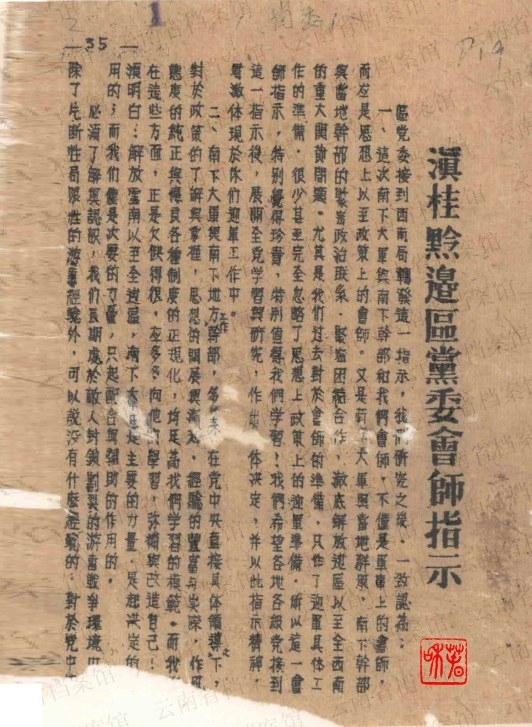 — 35 —
滇桂黔邊區黨委會師指示
區党委接到西南局轉發這一指示，我們研究之後，一致認為：
一、這次南下大軍與南下幹部和我們會師，不僅是軍事上的會師，
而应是思想上以至政策上的會師。又是南下大軍與當地群眾，南下幹部
與當地幹部的緊密政治联系，緊密团結合作，澈底解放边區以至全西南
的重大関鍵問題。尤其是我們过去對於會師的準備，只作了迎軍具体工
作的準備，很少甚至完全忽略了思想上政策上的迎軍準備。所以這一會
師指示，特别覺得珍貴，特别值得我們学習！我們希望各地各級党接到
這一指示後，展開全党学習與研究，作出具体決定，并以此指示精神，
貫澈体現於你們迎軍工作中。
二、南下大軍與南下地方工作幹部，多年来在党中央直接具体領導之下，
對於政策的了解與掌握，思想的開展與
經驗的豐富與
作風
態度的純正與優良各種制度的正規化，均足為我們学習的模範。而我
在這些方面，正是欠缺得很，应多多向他們学習，弥補與改造自己！
須明白：解放雲南以至全边區，南下大軍是主要的力量，是起決定的
用的；而我們僅是次要的力量，只起配合與輔助的作用的。
必須了解與認識，我們長期處於敵人對鎖割裂的游击戰爭環境
除了片断性局限性的游击經驗外，可以說没有什麽經驗的；對於党中